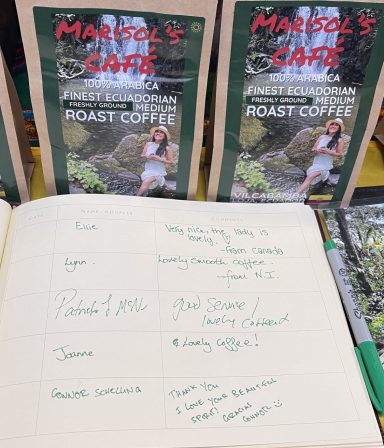 MARISOL'S
CAFÉ
100% ARABICA
FINEST ECUADORIAN
FRESHLY GROUND MEDIUM
ROAST COFFEE
MARISOL'S
CAFÉ
100% ARABICA
FINEST ECUADORIAN
FRESHLY GROUND MEDIUM
ROAST COFFEE
VILCABAMBA
DATE NAME/ADDRESS COMMENTS
Ellie Very nice, the lady is
lovely.
-From Canada
Lynn. Lovely smooth coffee.
-from N.I.
Patrick good service/
lovely coffee
Joanne Lovely Coffee!
CONNOR SCHELLING THANK YOU
I LOVE YOUR BEAUTIFUL
SPIRIT! GRACIAS
CONNOR :)